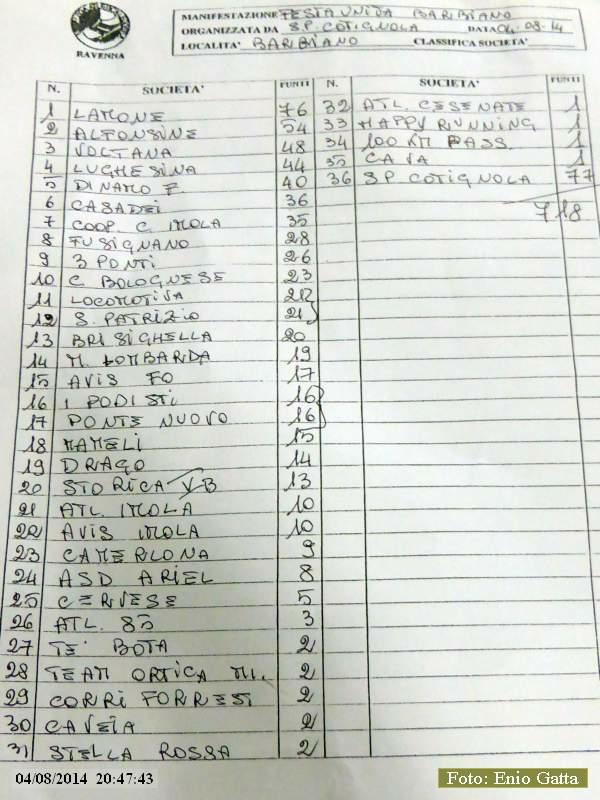 RAVENNA
MANIFESTAZIONE FESTA UNITA BARBIANO
ORGANIZZATA DA S.P. COTIGNOLA DATA 04-08-14
LOCALITA' BARBIANO CLASSIFICA SOCIETA'
N. SOCIETA' PUNTI N. SOCIETA' PUNTI
1 LAMONE 76 32 ATL. CESENATE 1
2 ALFONSINE 54 33 HAPPY RUNNING 1
3 VOLTANA 48 34 100 KM PASS. 1
4 LUGHESINA 44 35 CAVA 1
5 DINAMO F. 40 36 S.P. COTIGNOLA 77
6 CASADEI 36
7 COOP. C. IMOLA 35 718
8 FUSIGNANO 28
9 3 PONTI 26
10 C. BOLOGNESE 23
11 LOCOMOTIVA
12 S. PATRIZIO 21
13 BRISIGHELLA 20
14 M. LOMBARDA 19
15 AVIS FO 17
16 I PODISTI 16
17 PONTE NUOVO 16
18 MAMELI 15
19 DRAGO 14
20 STORICA VB 13
21 ATL IMOLA 10
22 AVIS IMOLA 10
23 CAMERLONA 9
24 ASD ARIEL 8
25 CERVESE 5
26 ATL. 85 3
27 TE' BOTA 2
28 TEAM ORTICA MI. 2
29 CORRI FORREST 2
30 CAVEIA 2
31 STELLA ROSSA 2
04/08/2014 20:47:43
Foto: Enio Gatta